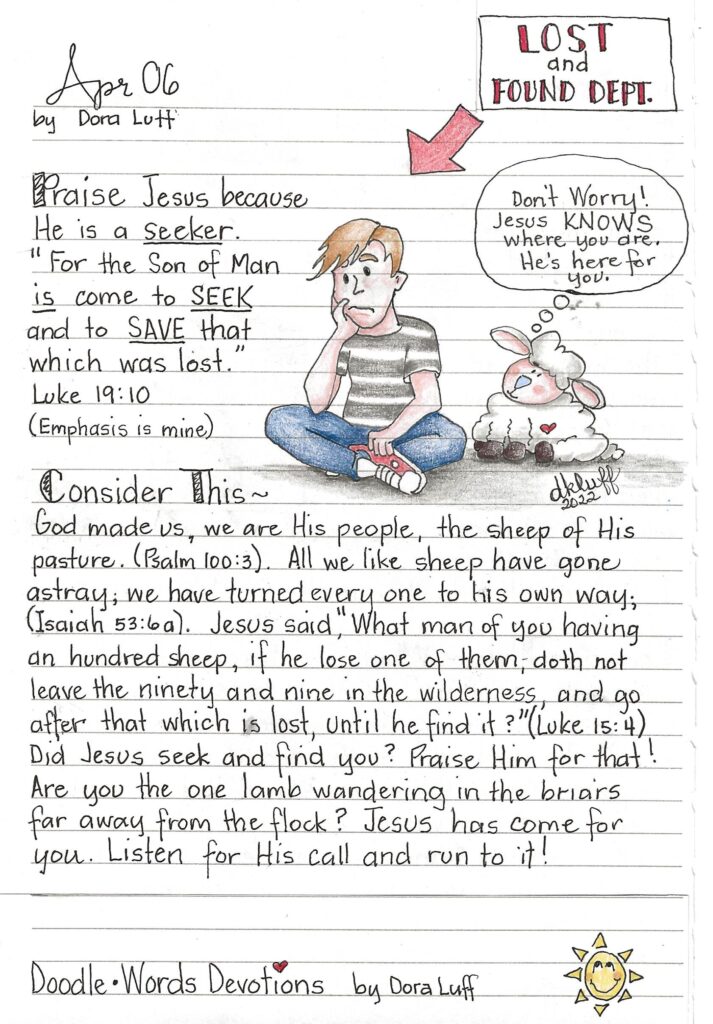 LOST
and
FOUND DEPT.
Apr 06
by Dora Luff
Praise Jesus because
He is a seeker.
"For the Son of Man
is come to SEEK
and to SAVE that
which was lost."
Luke 19:10
(Emphasis is mine)
Don't Worry!
Jesus KNOWS
where you are.
He's here for
you.
dkluff
2022
Consider This~
God made us, we are His people, the sheep of His
pasture. (Psalm 100:3). All we like sheep have gone
astray; we have turned every one to his own way;
(Isaiah 53:6a). Jesus said, "What man of you having
an hundred sheep, if he lose one of them, doth not
leave the ninety and nine in the wilderness, and go
after that which is lost, until he find it?" (Luke 15:4)
Did Jesus seek and find you? Praise Him for that!
Are you the one lamb wandering in the briars
far away from the flock? Jesus has come for
you. Listen for His call and run to it!
Doodle•Words Devotions by Dora Luff